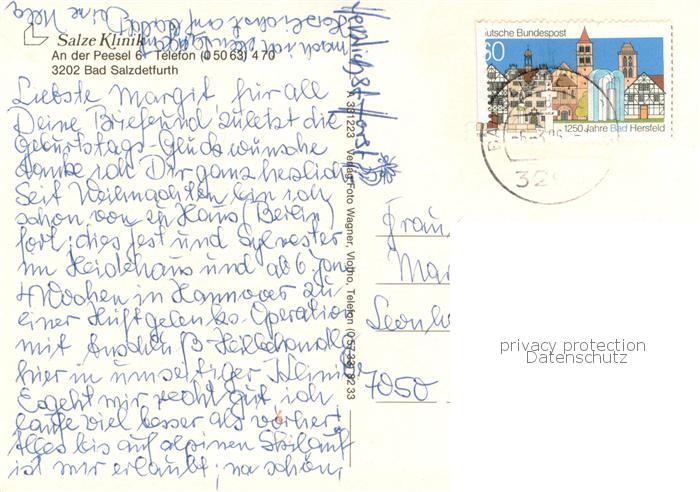 Salze Klinik
An der Peesel 6 · Telefon (0 50 63) 4 70
3202 Bad Salzdetfurth
Liebste Margit, für all
Deine Briefe und zuletzt die
Geburtstags-Glückwünsche
danke ich Dir ganz herzlich
Seit Weihnachten bin ich
schon von zu Haus (Berlin)
fort; dies Fest und Sylvester
im Heidehaus und ab 6. Jan.
4 Wochen in Hannover zu
einer Hüftgelenks-Operation
mit Anschluß-Heilbehandlg
hier in umseitiger Klinik
Es geht mir recht gut, ich
laufe viel besser als vorher!
Alles bis auf alpinen Skilauf
ist mir erlaubt; na schön,
herzlichst Deine
Herzlichst Horst
A 381223 Verlag Foto Wagner, Vlotho, Telefon (0 57 33) 22 33
Deutsche Bundespost
60
1250 Jahre Bad Hersfeld
BA
32
Frau
Mar
Leonh
7050
privacy protection
Datenschutz